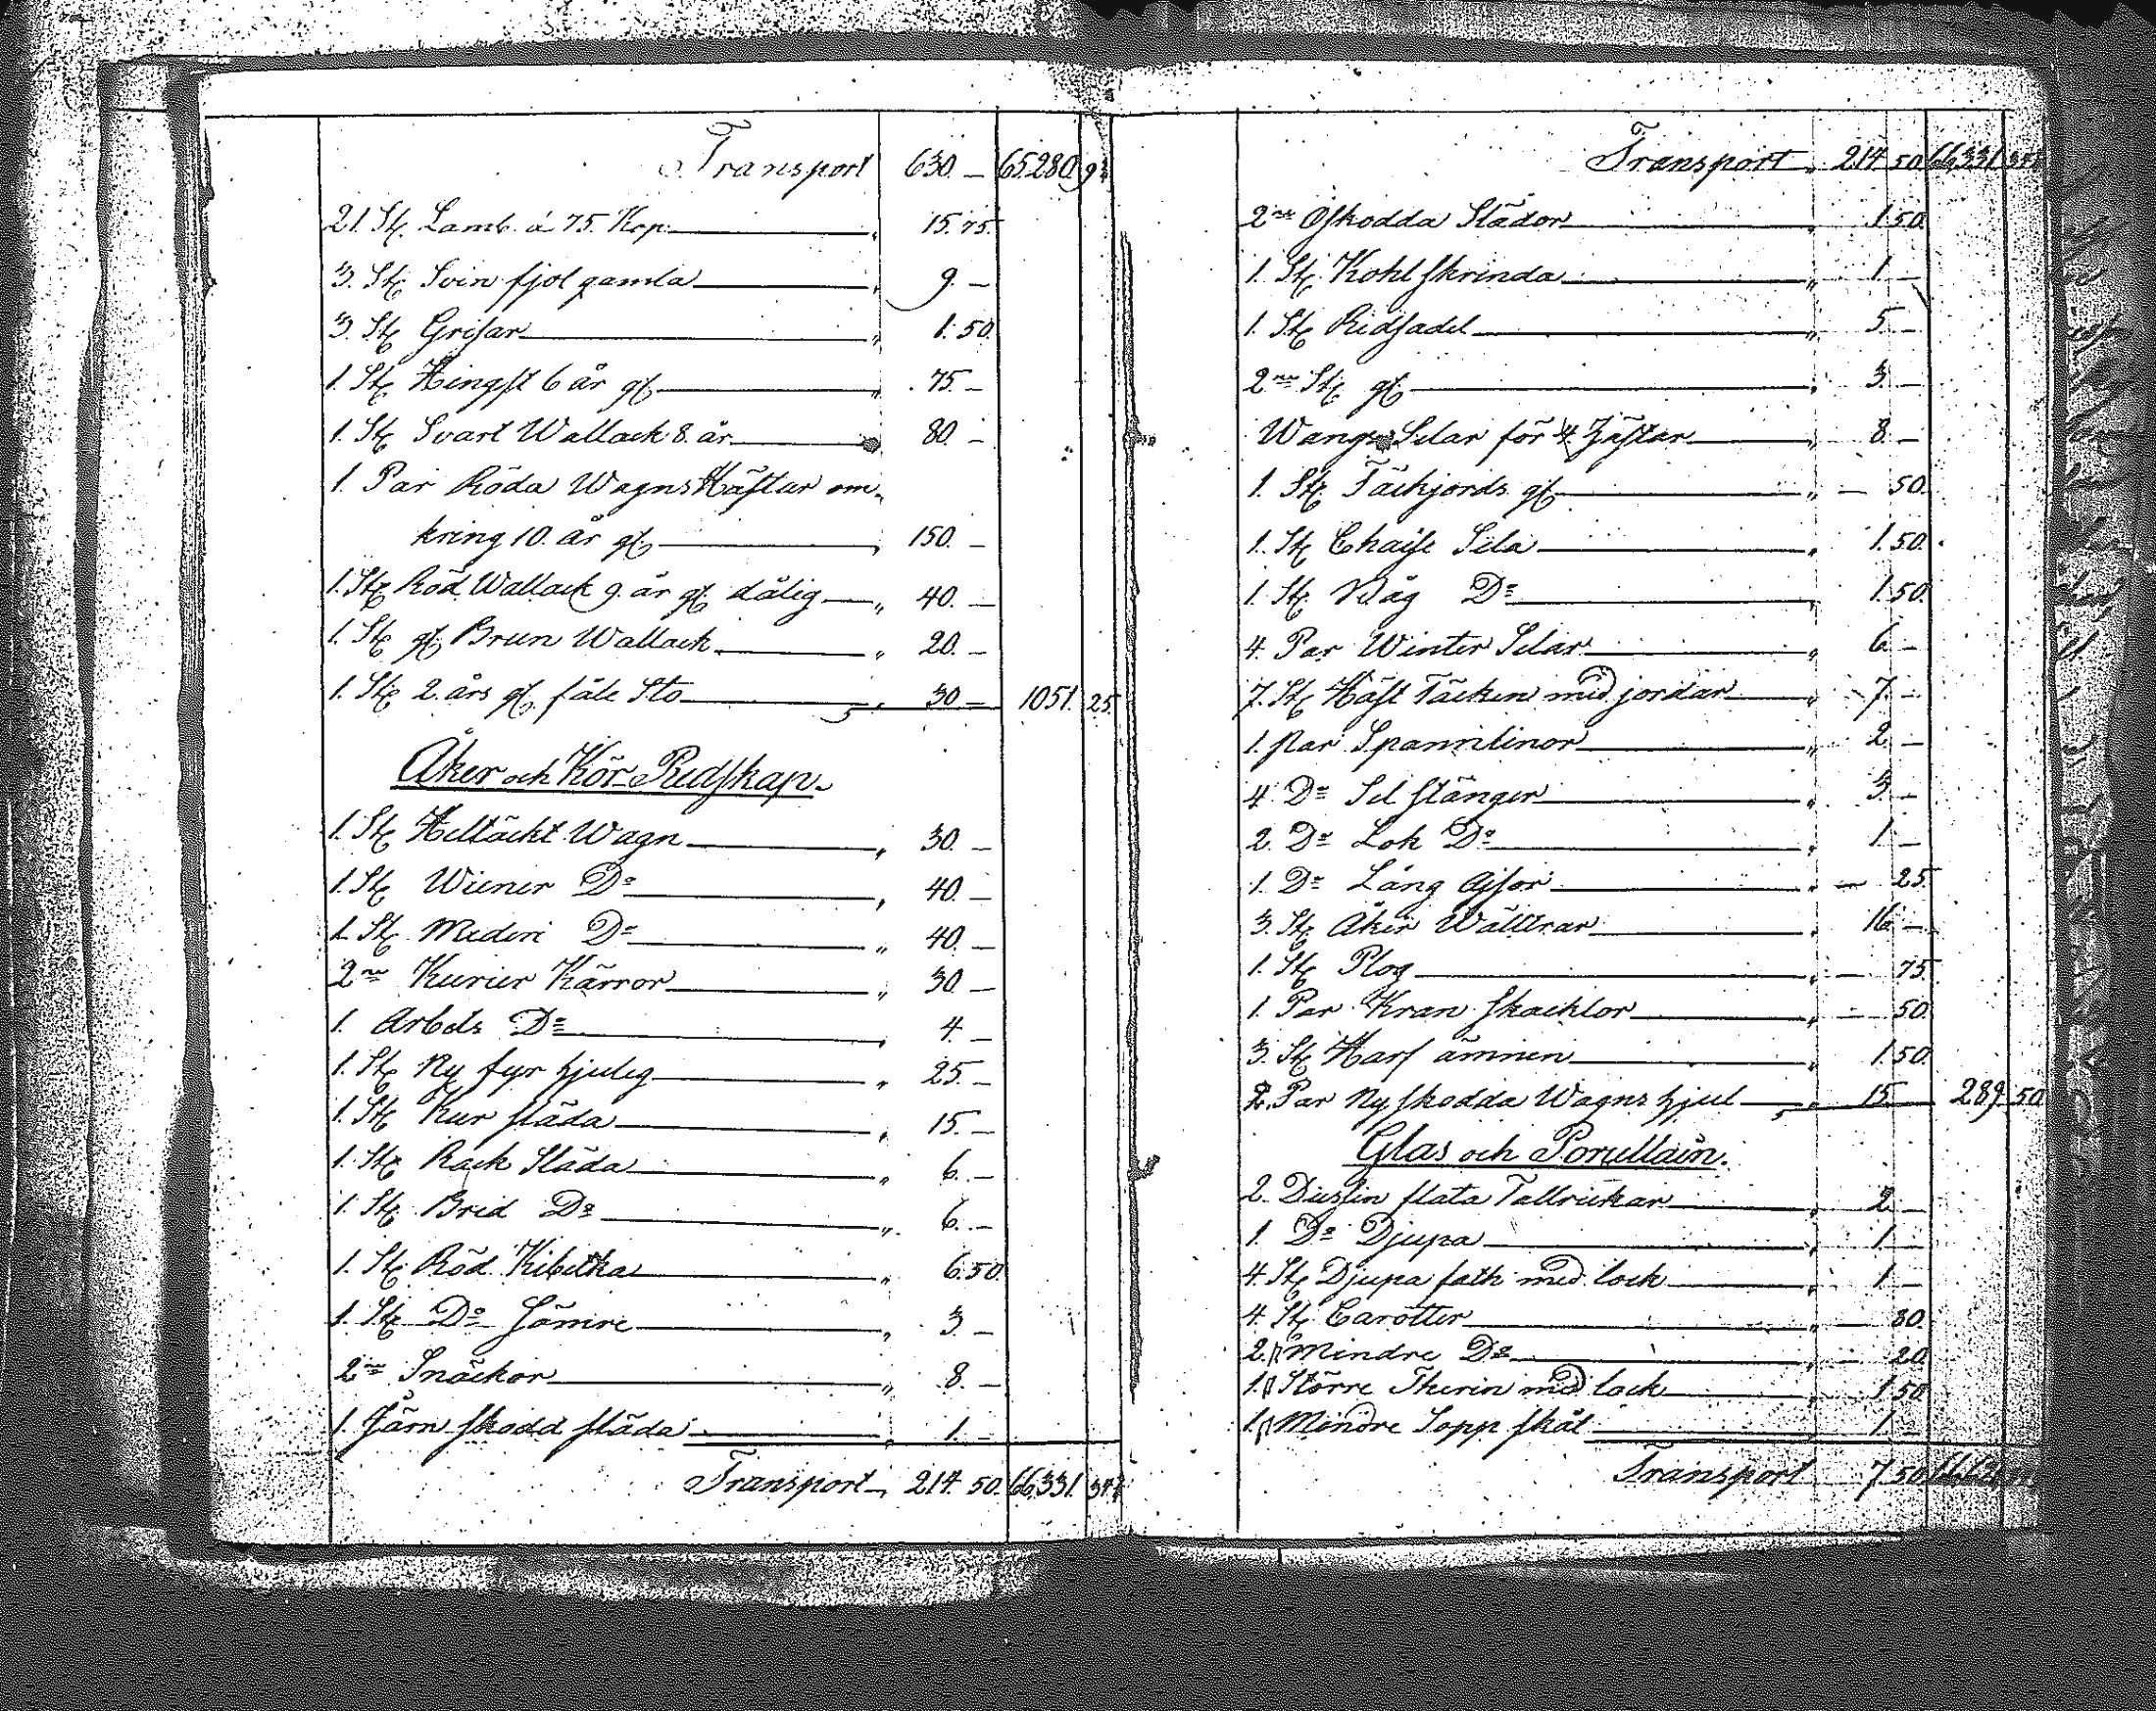 Transport 630. — 65280. 93
21. St. Lamb. á 75. Kop. " 15. 75.
3. St. Svin fjol gamla " 9. —
3. St. Grisar " 1. 50.
1. St. Hingst 6 år gl. " 75. —
1. St. Svart Wallack 8. år " 80. —
1. Par Röda Wagns Hästar om-
kring 10. år gl. " 150. —
1. St. Röd Wallack 9. år gl. dålig " 40. —
1. St. gl. Brun Wallack " 20. —
1. St. 2. års gl. fåle Sto " 30 — 1051. 25.
Åker och Kör Redskap.
1. St. Heltäckt Wagn " 30. —
1. St. Wiener Do " 40. —
1. St. Do " 40. —
2ne Kurier Kärror " 30 —
1. Arbets Do " 4. —
1. St. Ny fyr hjulig " 25. —
1. St. Kur släda " 15. —
1. St. Rack Släda " 6. —
1. St. Bred Do " 6. —
1. St. Röd Kibitka " 6. 50.
1. St. Do Sämre " 3. —
2ne Snäckor " 8. —
1. Järn skodd släda " 1. —
Transport " 214. 50. 66,331.
Transport " 214 50 66,331
2ne Oskodda Slädor " 1. 50.
1. St. Kohl skrinda " 1. —
1. St. Ridsadel " 5 —
2ne St. gl. " 3. —
Wangs Selar för 4. Hästar " 8 —
1. St. Täckjords gl. " — 50.
1. St. Chaise Sela " 1. 50.
1. St. Wåg Do " 1. 50.
4. Par Winter Selar " 6 —
7. St. Häst Täcken med jordar " 7. —
1. par Spannlinor " 2 —
4. Do Sel stänger " 3. —
2. Do Lok Do " 1. —
1. Do Lång " — 25.
3. St. Åker Wältrar " 16 —
1. St. Plog " — 75.
1. Par Kran skacklor " — 50.
3. St. Harf ämnen " 1. 50.
2. Par Ny skodda Wagns hjul " 15 289. 50.
Glas och Porcellain.
2. Dussin flata Tallrickar " 2 —
1. Do Djupa " 1. —
4. St. Djupa fath med lock " 1 —
4. St. Carotter " — 80.
2. " Mindre Do " — 20.
1. " Större Therin med lock " 1 50
1. " Mindre Sopp skål " 1 —
Transport 7 50